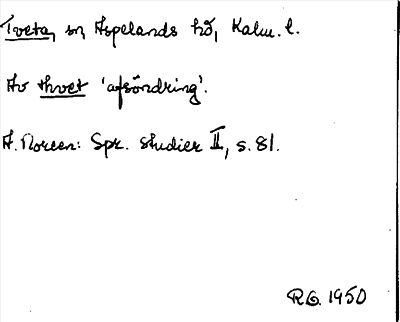 Tveta, sn, Aspelands hd, Kalm. l.
Av thvet 'afsöndring'.
A. Noreen: Spr. studier II, s. 81.
R G. 1950